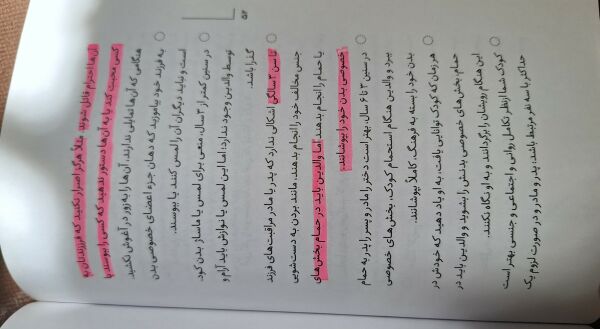 آن‌ها احترام قائل شوید. مثلاً هرگز اصرار نکنید که فرزندتان به
کسی محبت کند یا به آن‌ها دستور ندهید که کسی را ببوسد یا
هنگامی که آن‌ها تمایلی ندارند، آن‌ها را به زور در آغوش نکشید.
به فرزند خود بیاموزید که دهان جزء اعضای خصوصی بدن
است و نباید دیگران آن را لمس کنند یا ببوسند.
در سنین کمتر از ۳ سال، منعی برای لمس یا ماساژ بدن کودک
توسط والدین وجود ندارد، اما این لمس یا نوازش باید آرام و
گذرا باشد.
تا سن ۳ سالگی اشکالی ندارد که پدر یا مادر مراقبت‌های فرزند
جنس مخالف خود را انجام بدهند، مانند بردن به دست‌شویی
یا حمام را انجام بدهند اما والدین باید در حمام بخش‌های
خصوصی بدن خود را بپوشانند.
در سنین ۳ تا ۶ سال، بهتر است دختر را مادر و پسر را پدر به حمام
ببرد و والدین هنگام استحمام کودک، بخش‌های خصوصی
بدن خود را بسته به فرهنگ، کاملاً بپوشانند.
هر زمان که کودک توانایی یافت، به او یاد دهید که خودش در
حمام، بخش‌های خصوصی بدنش را بشوید و والدین باید در
این هنگام رویشان را برگردانند و به او نگاه نکنند.
کودک شما از نظر تکامل روانی و اجتماعی و جنسی بهتر است
حداکثر با سه نفر مرتبط باشد، پدر و مادر و در صورت لزوم یک
۵۶